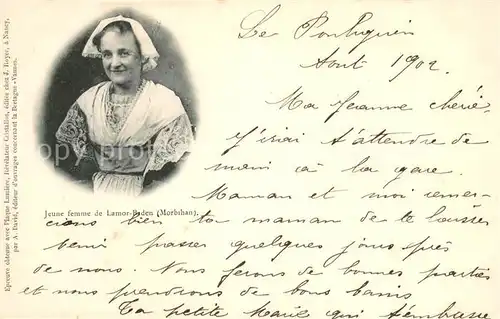 Le Pouliguen
Août 1902
Ma Jeanne chérie
J'irai t'attendre de
main à la gare.
Maman et moi remer-
Jeune femme de Lamor-Baden (Morbihan).
cions bien ta maman de te laisser
venir passer quelques jours près
de nous. Nous ferons de bonnes parties
et nous prendrons de bons bains
Ta petite Marie qui t'embrasse
Epreuve obtenue avec Plaque Lumière, Révélateur Cristallos, éditée chez J. Royer, à Nancy,
par A. David, éditeur d'ouvrages concernant la Bretagne - Vannes.